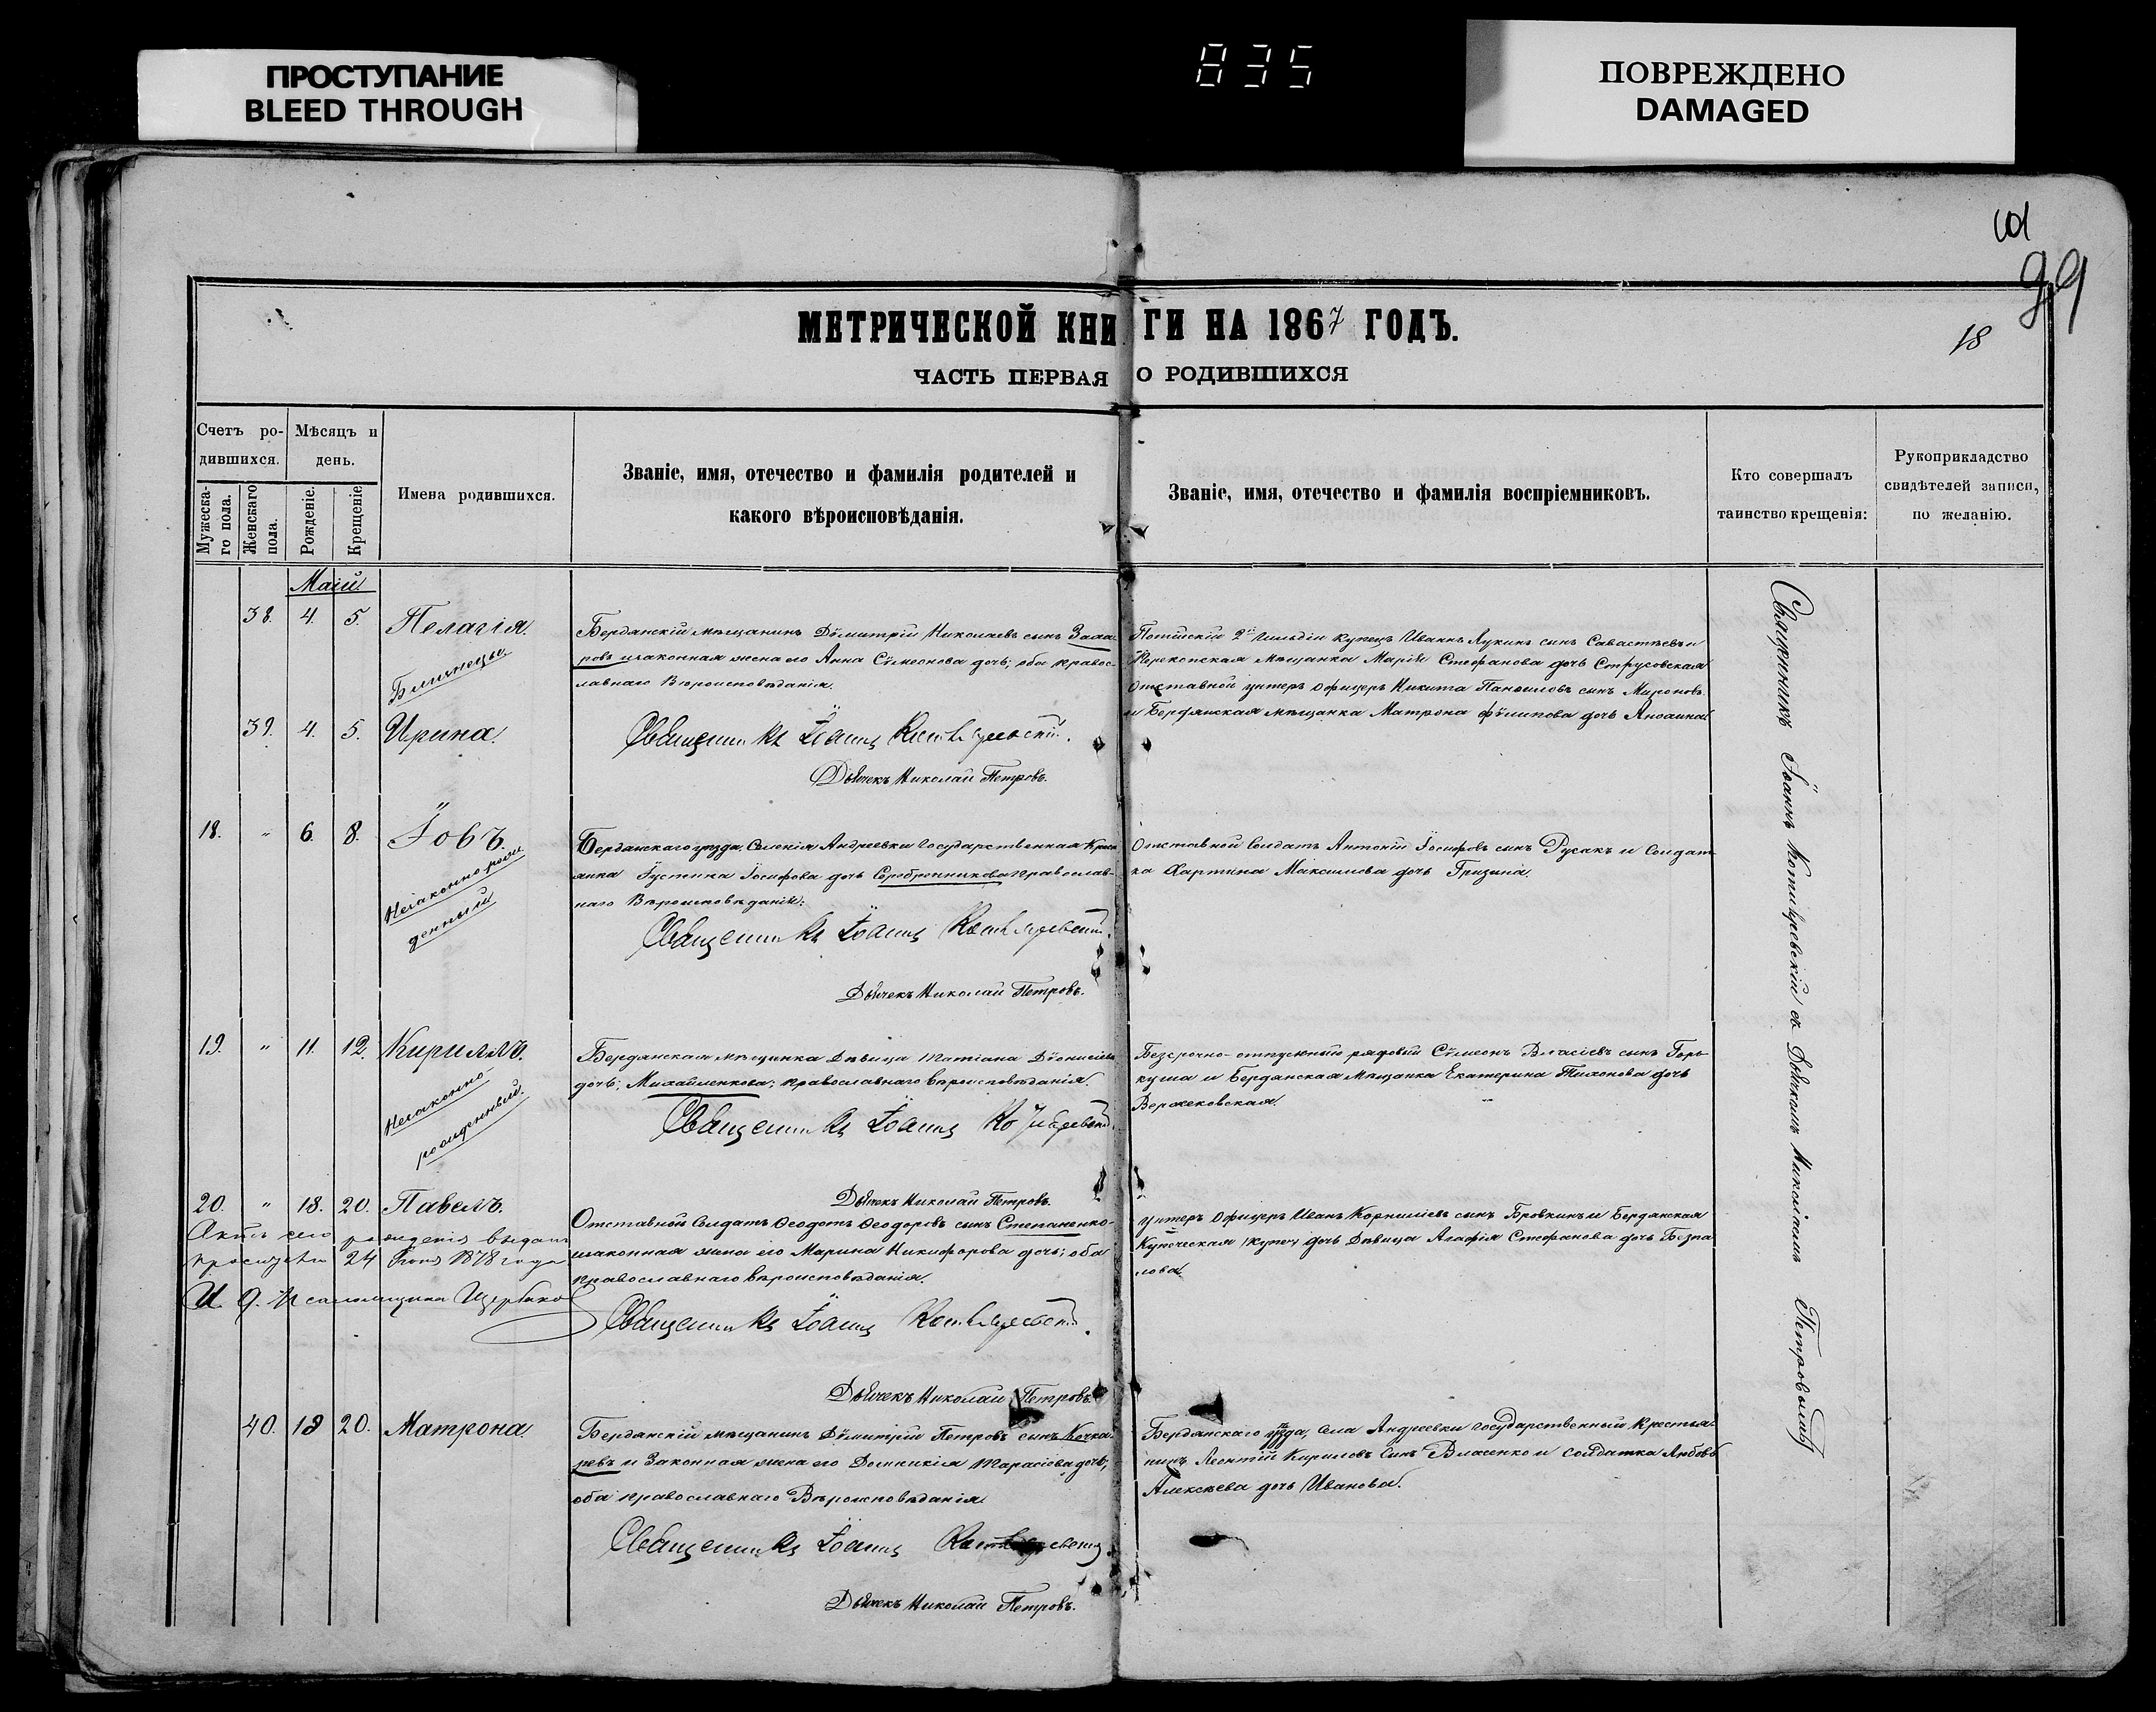 ПРОСТУПАНИЕ
BLEED THROUGH
835
ПОВРЕЖДЕНО
DAMAGED
99
18
МЕТРИЧЕСКОЙ КНИГИ НА 1867 ГОДЪ.
ЧАСТЬ ПЕРВАЯ О РОДИВШИХСЯ
Счетъ ро-
дившихся.
Мужеска-
го пола.
Женскаго
пола.
Мѣсяцъ и
день.
Рожденіе.
Крещеніе
Имена родившихся.
Званіе, имя, отечество и фамилія родителей и
какого вѣроисповѣданія.
Званіе, имя, отечество и фамилія воспріемниковъ.
Кто совершалъ
таинство крещенія:
Рукоприкладство
свидѣтелей записи,
по желанію.
Маій
38. 4. 5. Пелагія.
Близнецы
39. 4. 5. Ирина.
Бердянскій мѣщанинъ Дѵмитрій Николаевъ сынъ
и законная жена его Анна Сѵмеонова дочь; оба правос-
лавнаго Вѣроисповѣданія.
Священникъ Іоаннъ
Дьячекъ Николай Петровъ.
2й гильдіи купецъ Иванъ Лукинъ сынъ Савастѣевъ и
мѣщанка Марія Стефанова дочь Струсовская
Отставной унтеръ офицеръ Никита сынъ Мироновъ
и Бердянская мѣщанка Матрона Фѵлипова дочь
18. " 6. 8. Іовъ.
Незаконнорож
денный
Бердянскаго уѣзда, Селенія Андреевки Государственная Крест
янка Іустина Іосифова дочь Серебренникова православ-
наго Вѣроисповѣданія:
Священникъ Іоаннъ
Дьячекъ Николай Петровъ.
Отставной Солдатъ Антоній Іосифовъ сынъ Русакъ и Солдат
ка Харитина Максимова дочь Гризина.
19. " 11. 12. Кириллъ.
Незаконно-
рожденный.
Бердянская мѣщанка Дѣвица Татіана Діонисіева
дочь; Михайленкова; православнаго вѣроисповѣданія.
Священникъ Іоаннъ
Дьячекъ Николай Петровъ.
Безсрочно-отпускный рядовый Сѵмеонъ Власіевъ сынъ Горь-
куша и Бердянская Мѣщанка Екатерина Тихонова дочь
Вержековская.
20. " 18. 20. Павелъ.
Актъ сего рожденія выданъ
24 1878 года
И. д. Псаломщика Щербако
Отставной Солдатъ Ѳеодотъ Ѳеодоровъ сынъ Степаненко-
и законная жена его Марина Никифорова дочь; оба
православнаго вѣроисповѣданія.
Священникъ Іоаннъ
Дьячекъ Николай Петровъ.
Унтеръ Офицеръ Иванъ Корниліевъ сынъ Бровкинъ и Бердянская
Купеческая дочь Дѣвица Агафія Стефанова дочь Безпа
лова.
40. 18 20. Матрона
Бердянскій мѣщанинъ Дѵмитрій Петровъ сынъ Кочка-
ревъ и Законная жена его Домникія Тарасіева дочь;
оба православнаго Вѣроисповѣданія
Священникъ Іоаннъ
Дьячекъ Николай Петровъ.
Бердянскаго уѣзда, села Андреевки государственный Крестья-
нинъ Леонтій Кириловъ Сынъ Власенко и Солдатка Любовь
Алексѣева дочь Иванова.
Священникъ Іоаннъ съ Дьячкомъ Николаемъ Петровымъ